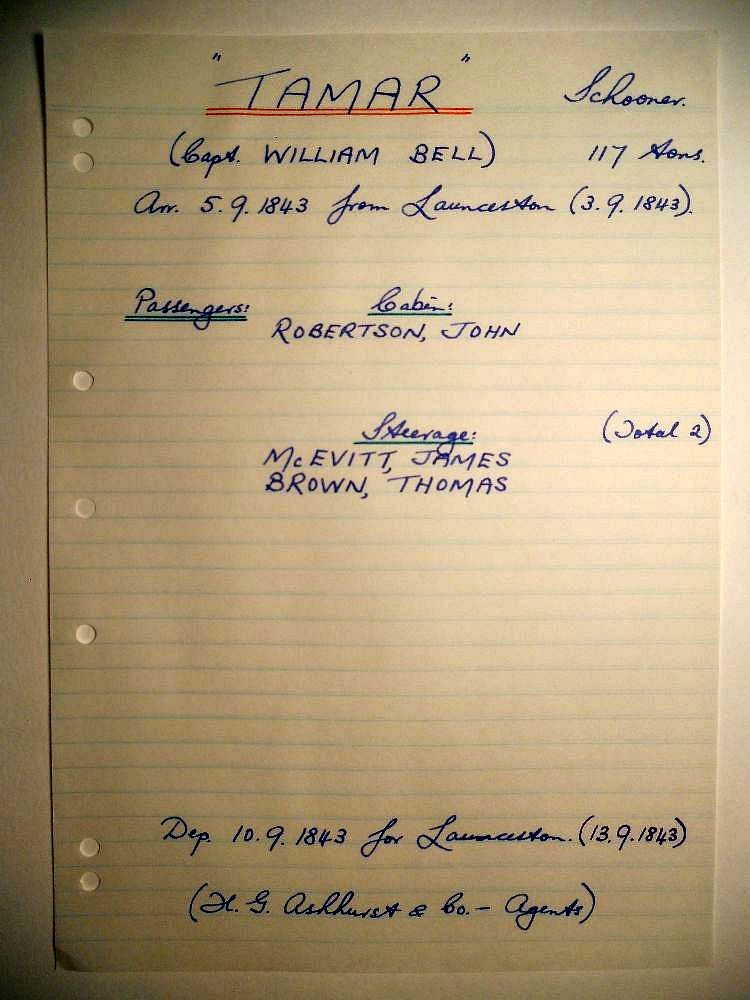 "TAMAR" Schooner.
(Capt. WILLIAM BELL) 117 tons.
Arr. 5.9.1843 from Launceston (3.9.1843).
Passengers: Cabin:
ROBERTSON, JOHN
Steerage: (Total 2)
McEVITT, JAMES
BROWN, THOMAS
Dep. 10.9.1843 for Launceston. (13.9.1843)
(H. G. Ashhurst & Co. - Agents)